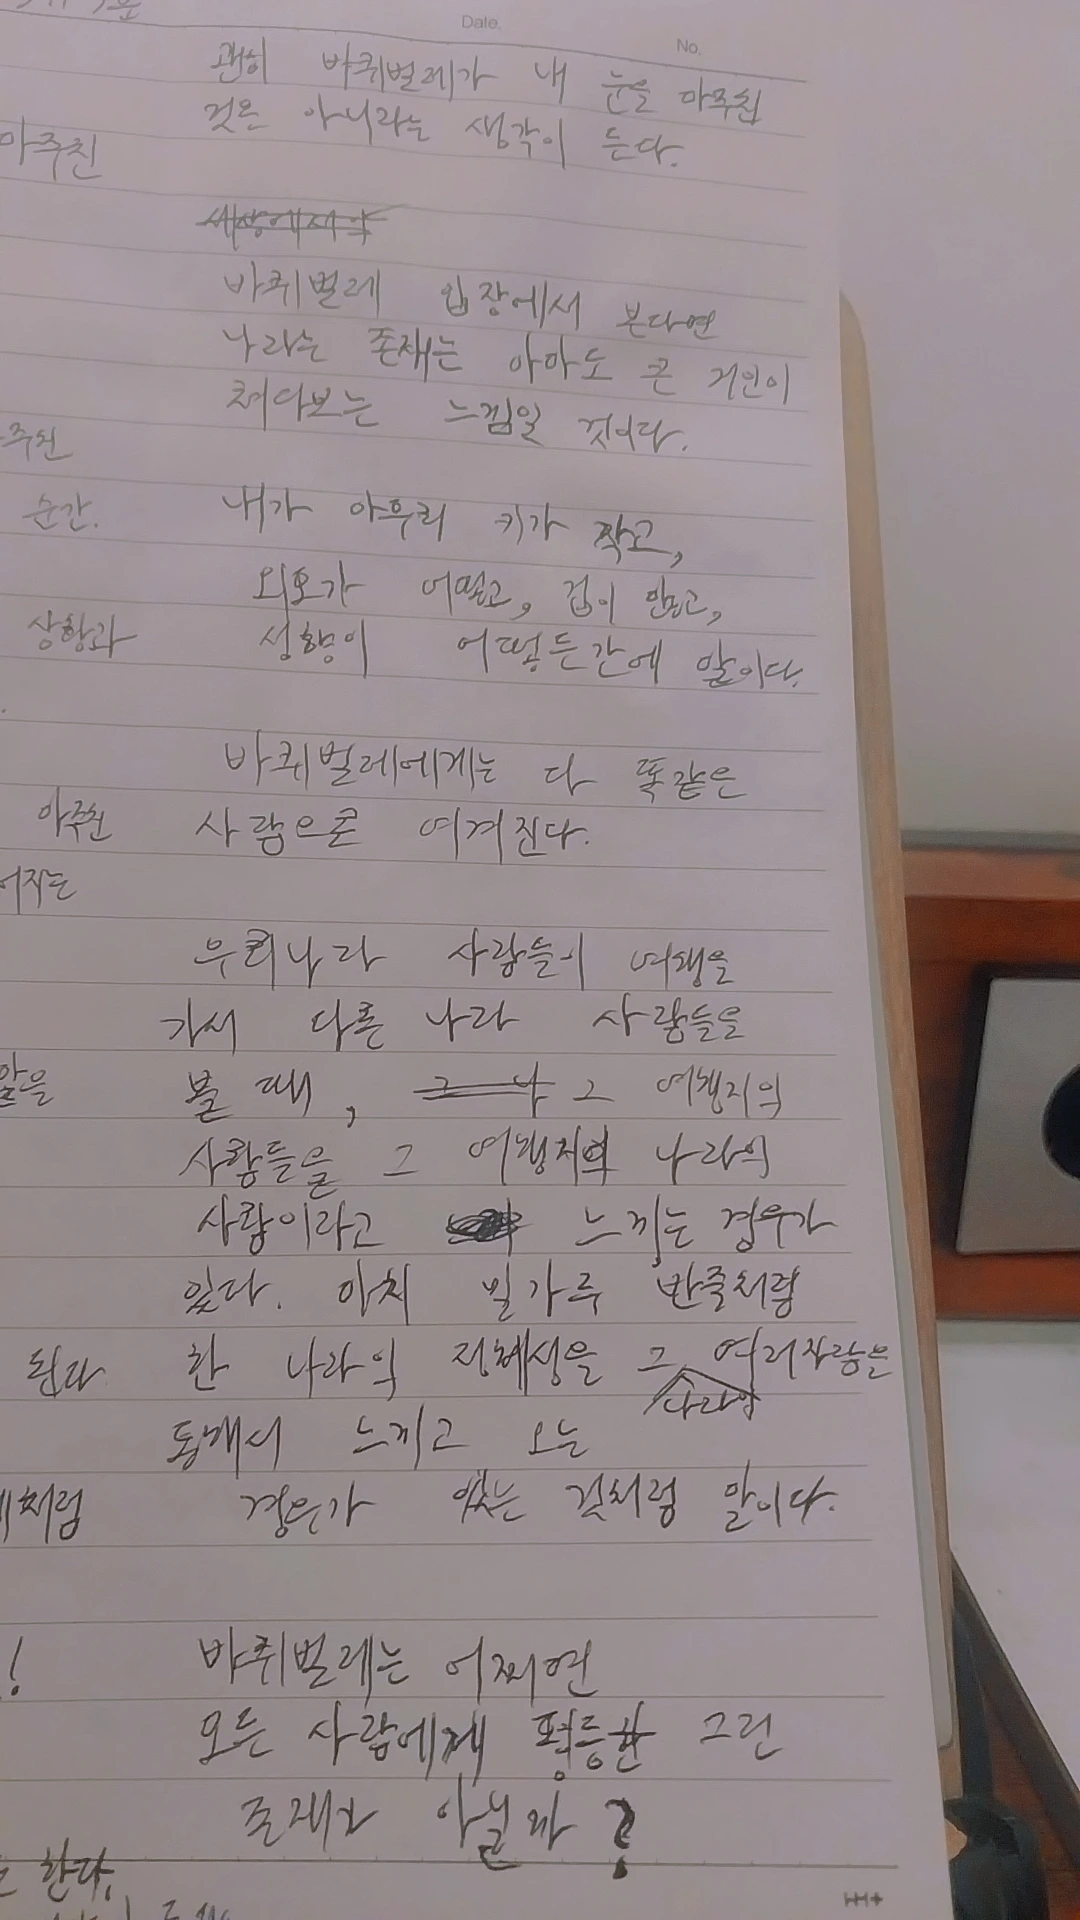 Date.
No.
괜히 바퀴벌레가 내 눈을 마주친
것은 아니라는 생각이 든다.
마주친
바퀴벌레 입장에서 본다면
나라는 존재는 아마도 큰 거인이
쳐다보는 느낌일 것이다.
순간.
내가 아무리 키가 작고,
외모가 어떻고, 겁이 많고,
상황과
성향이 어떻든간에 말이다.
바퀴벌레에게는 다 똑같은
마주친
사람으로 여겨진다.
우리나라 사람들이 여행을
가서 다른 나라 사람들을
볼 때, 그 여행지의
사람들을 그 여행지의 나라의
사람이라고 느끼는 경우가
있다. 마치 밀가루 반죽처럼
된다
한 나라의 정체성을 그 나라의 여러사람을
통해서 느끼고 오는
처럼
경우가 있는 것처럼 말이다.
!
바퀴벌레는 어쩌면
모든 사람에게 평등한 그런
존재가 아닐까?
한다.